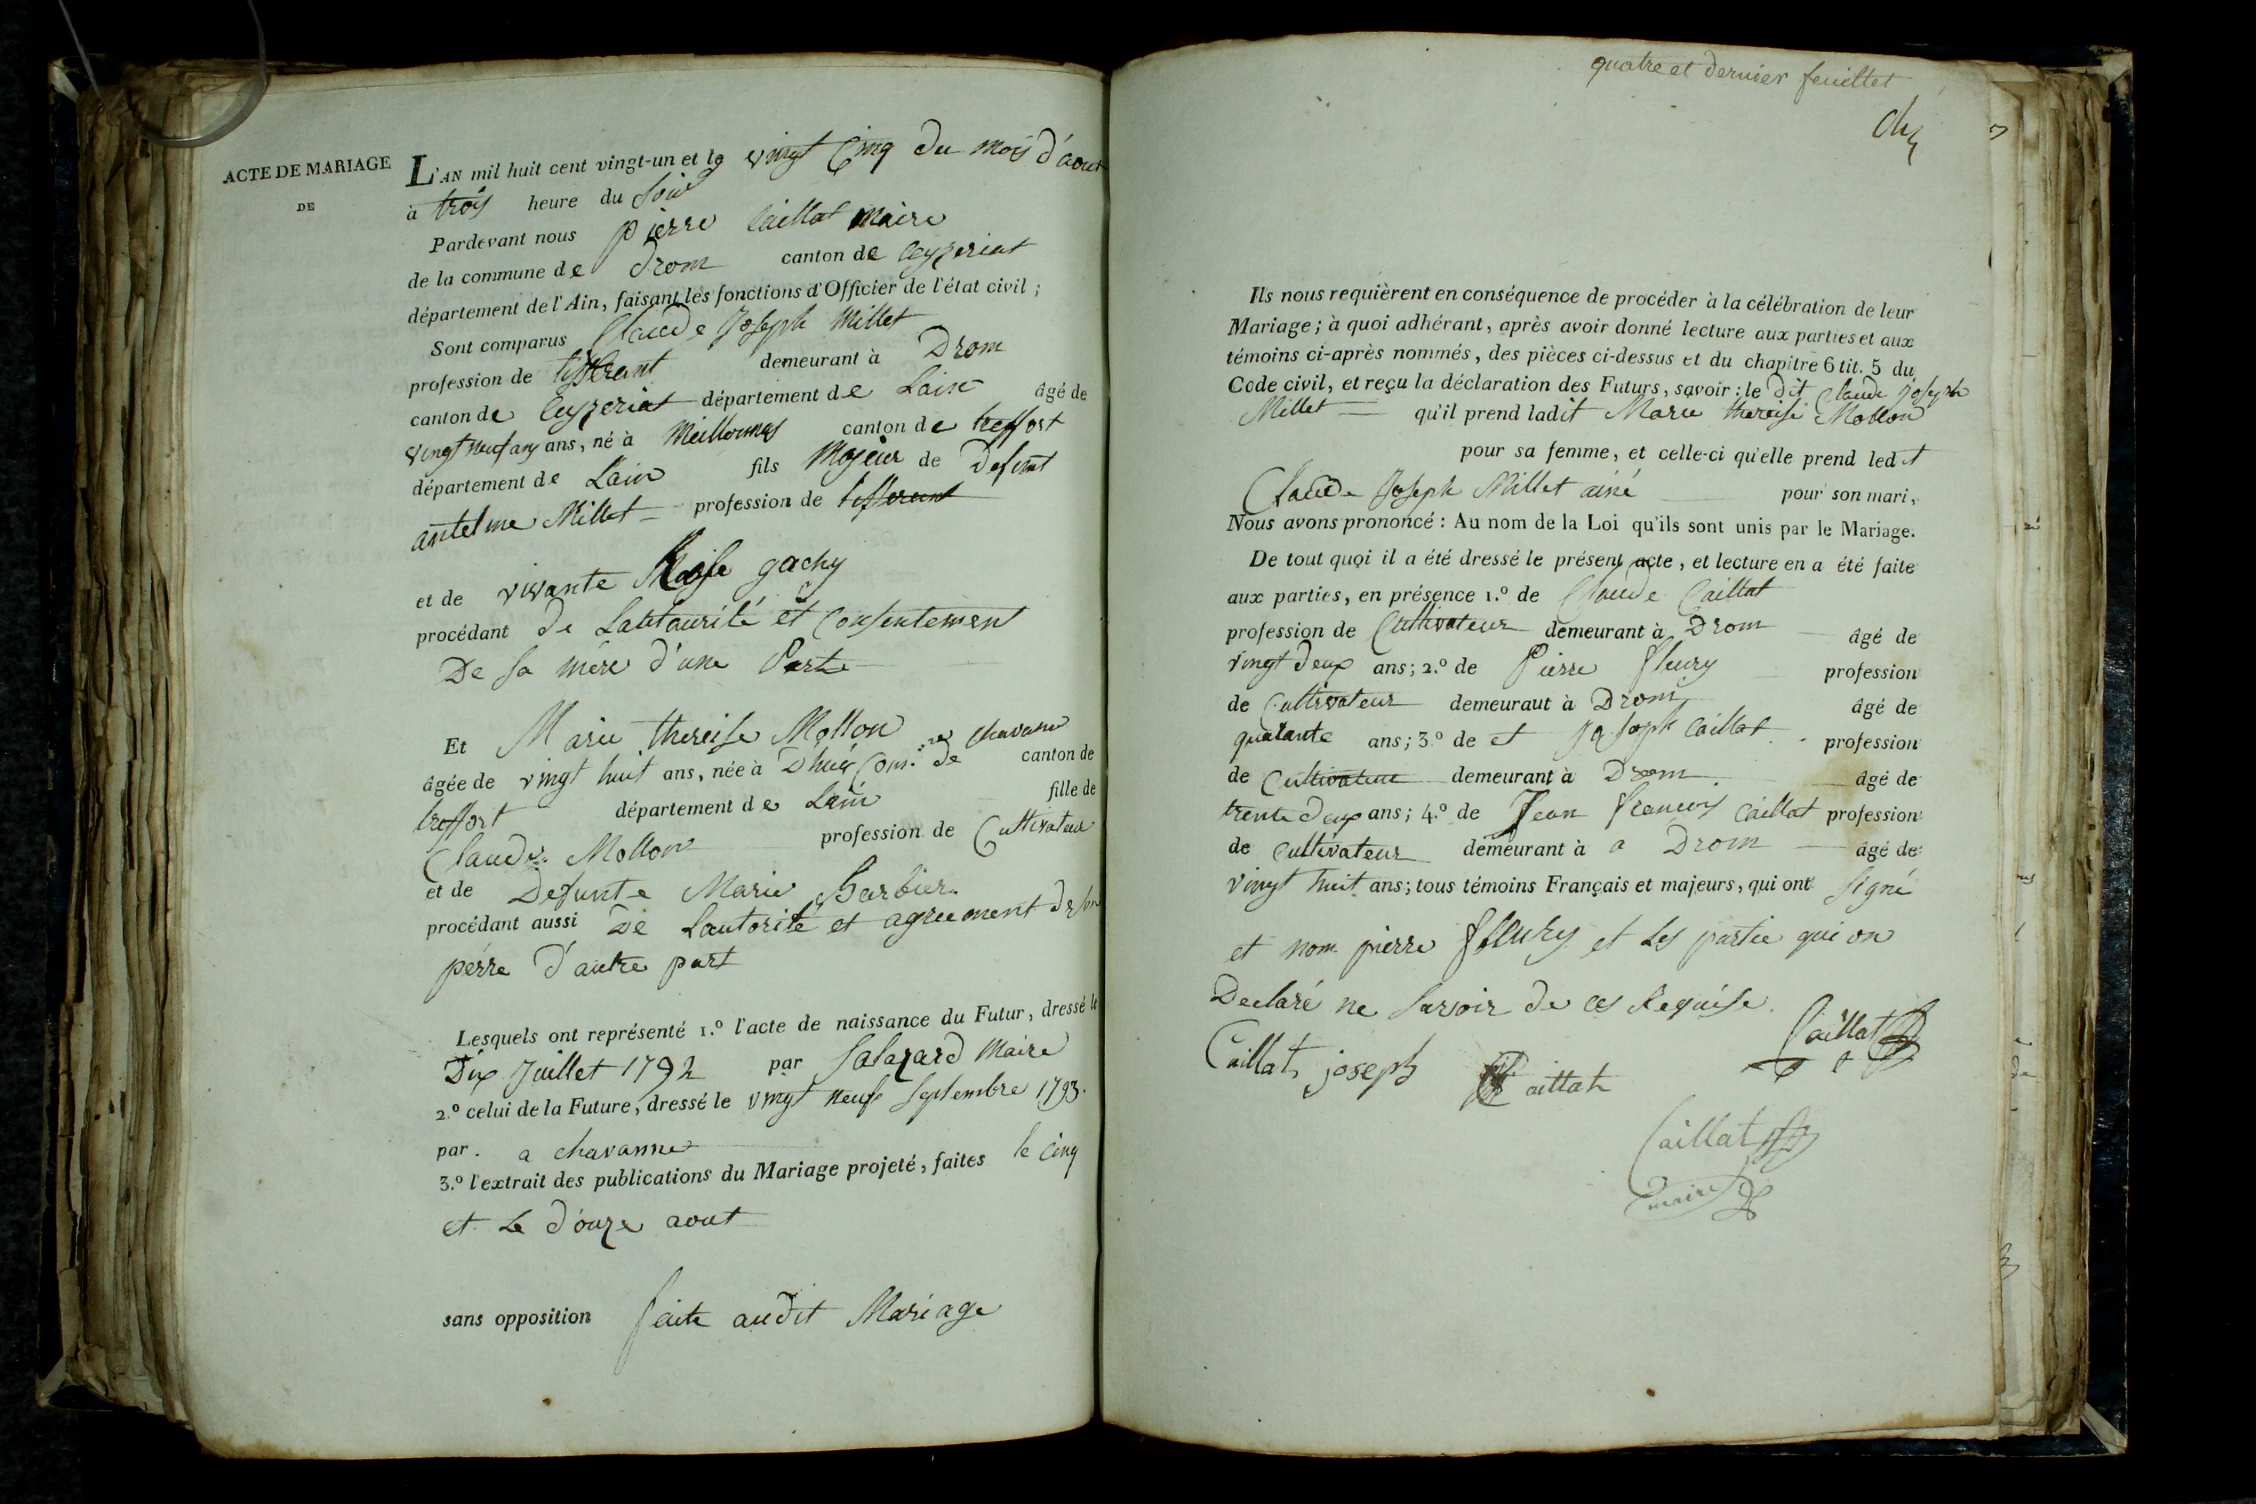 ACTE DE MARIAGE
DE
L'AN mil huit cent vingt-un et le vingt Cinq du mois d'aout
à trois heure du Soir
Pardevant nous pierre Caillat Maire
de la commune de Drom canton de Ceyzeriat
département de l'Ain, faisant les fonctions d'Officier de l'état civil ;
Sont comparus Claude Joseph Millet
profession de tisserant demeurant à Drom
canton de Ceyzeriat département de Lain âgé de
vingt neuf ans ans, né à Meillonnas canton de treffort
département de Lain fils Majeur de Defunt
antelme Millet profession de tisserant
et de vivante gachy
procédant de Lautaurité et Consentement
De sa mère d'une Parte
Et Marie thereise Mollon
âgée de vingt huit ans, née à Dhuis Com.ne de Chavane canton de
treffort département de Lain fille de
Claude Mollon profession de Cultivateur
et de Defunte Marie Barbier
procédant aussi De Lautorité et agreement de son
pérre d'autre part
Lesquels ont représenté 1.º l'acte de naissance du Futur, dressé le
Dix Juillet 1792 par Salazard Maire
2.º celui de la Future, dressé le vingt neufs Septembre 1793.
par. a chavanne
3.º l'extrait des publications du Mariage projeté, faites le Cinq
et Le d'ouze aout
sans opposition faite audit Mariage
quatre et dernier feuillet
Ils nous requièrent en conséquence de procéder à la célébration de leur
Mariage ; à quoi adhérant, après avoir donné lecture aux parties et aux
témoins ci-après nommés, des pièces ci-dessus et du chapitre 6 tit. 5 du
Code civil, et reçu la déclaration des Futurs, savoir : le dit Claude Joseph
Millet qu'il prend ladit Marie thereise Mollon
pour sa femme, et celle-ci qu'elle prend ledit
Claude Joseph Millet ainé pour son mari,
Nous avons prononcé : Au nom de la Loi qu'ils sont unis par le Mariage.
De tout quoi il a été dressé le présent acte, et lecture en a été faite
aux parties, en présence 1.º de Claude Caillat
profession de Cultivateur demeurant à Drom âgé de
vingt deux ans ; 2.º de Pierre fleury profession
de Cultivateur demeuraut à Drom âgé de
quatante ans ; 3.º de et Joseph Caillat profession
de Cultivateur demeurant à Drom âgé de
trente deux ans ; 4.º de Jean francois Caillat profession
de Cultivateur demeurant à a Drom âgé de
vingt huit ans ; tous témoins Français et majeurs, qui ont signé
et nom pierre et les partie qui on
Declaré ne Savoir de ces Requise.
Caillat joseph Caillat Caillat
Caillat
maire